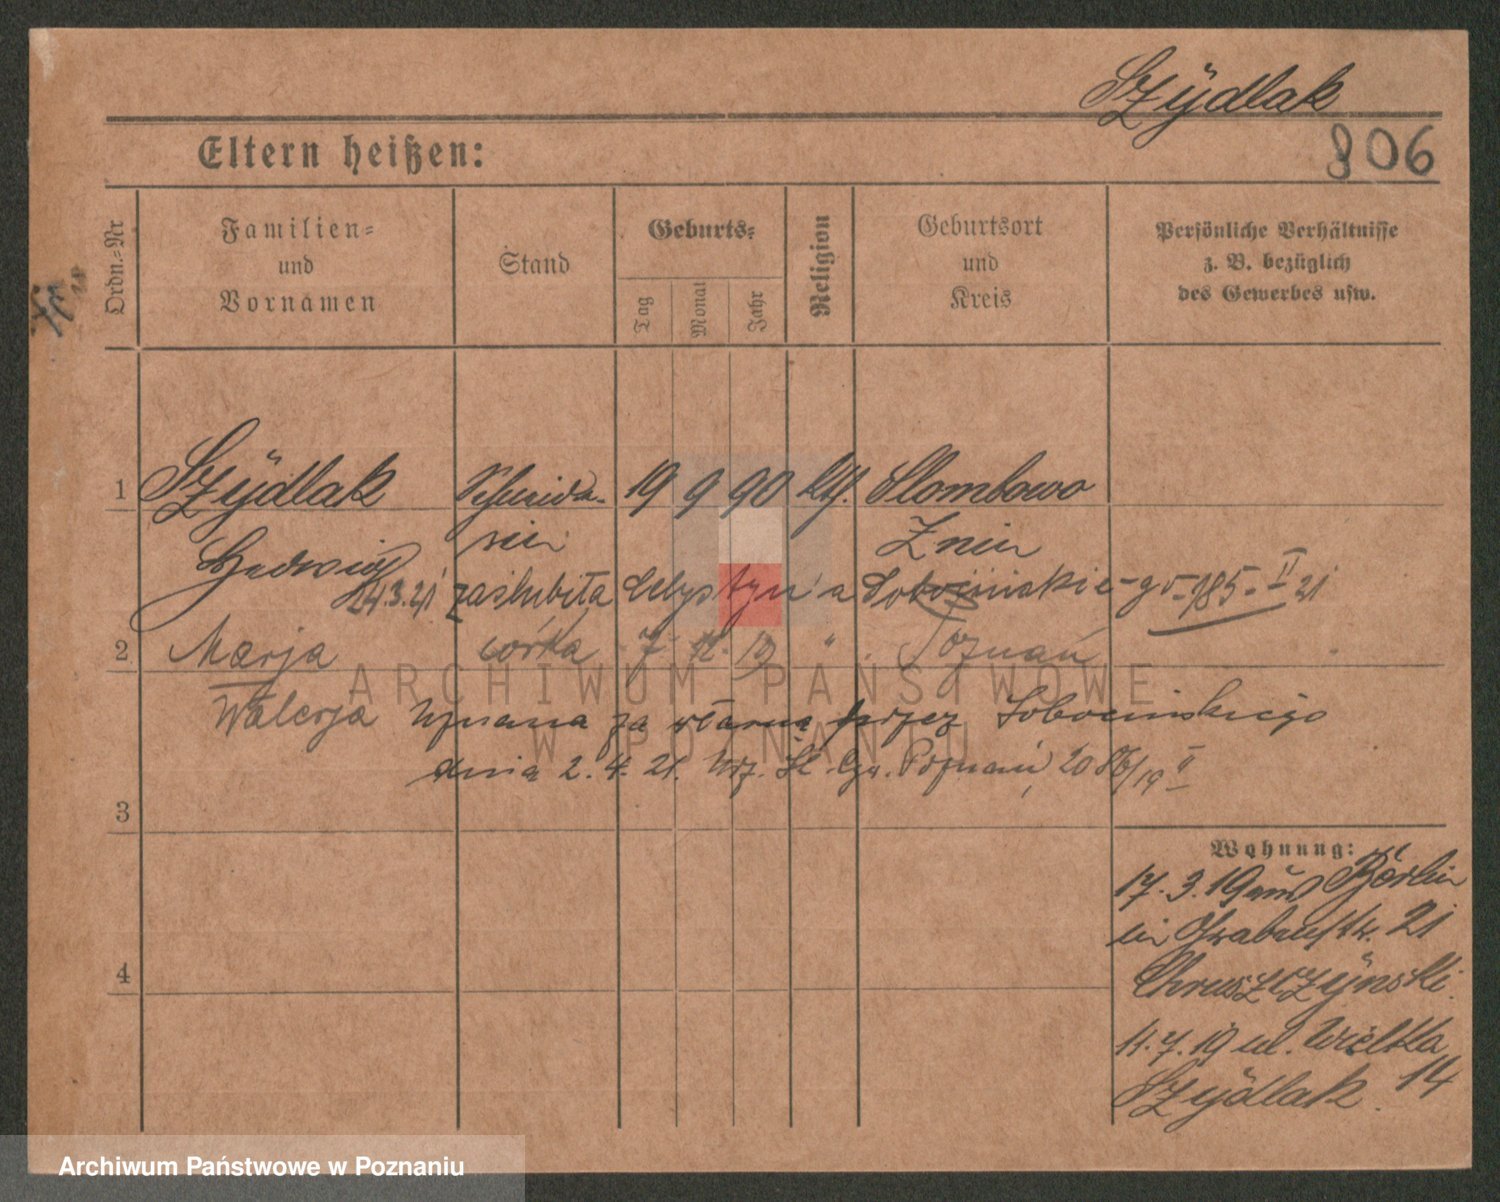 Szÿdlak
806
Eltern heißen:
Ordn.-Nr
Familien-
und
Vornamen
Stand
Geburts-
Tag
Monat
Jahr
Religion
Geburtsort
und
Kreis
Persönliche Verhältnisse
z. B. bezüglich
des Gewerbes usw.
1 Szÿdlak Schneide- 19 9 90 kth. Slombowo
Hedwig rin Znin
24.3.21 zaślubiła Celystyn'a Sobocińskie-go - 185 - II 21
2 Marja córka 7 12 19 " Poznań
Walerja Uznana za własną przez Sobocinskiego
dnia 2. 4. 21. Urz. St. Cyw. Poznań, 2086/19 II
3
4
Wohnung:
17. 3. 19 aus Berlin
bei Grabenstr. 21
Chruszczÿnski.
11. 7. 19 ul. Wielka 14
Szÿdlak.
ARCHIWUM PAŃSTWOWE
W POZNANIU
Archiwum Państwowe w Poznaniu